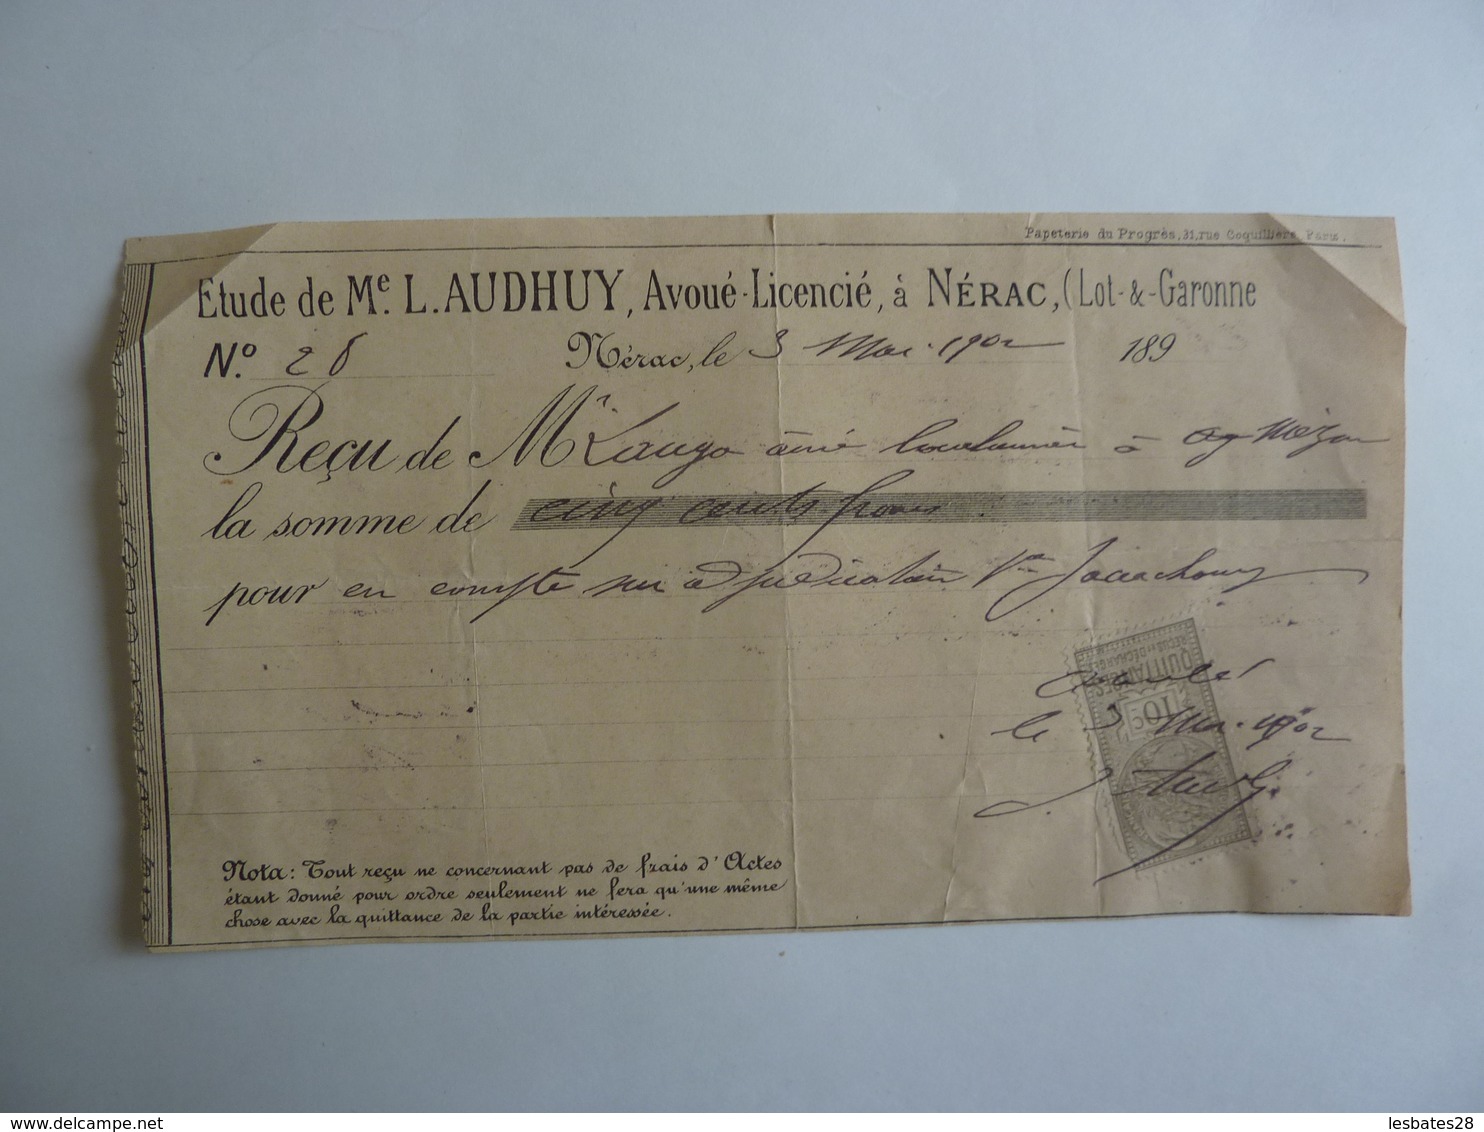 Papeterie du Progrès, 31, rue Coquillière, Paris.
Etude de Me. L. AUDHUY, Avoué-Licencié, à NÉRAC, (Lot-&-Garonne
No. 28
Nérac, le 3 Mai 1902 189
Reçu de Mr aîné à Mézin
la somme de cinq cents francs
pour en compte sur adjudication
QUITTANCES
REÇUS ET DÉCHARGES
10c
le 3 Mai 1902
Nota: Tout reçu ne concernant pas de frais d'Actes
étant donné pour ordre seulement ne fera qu'une même
chose avec la quittance de la partie intéressée.
delcampe.net
lesbates28